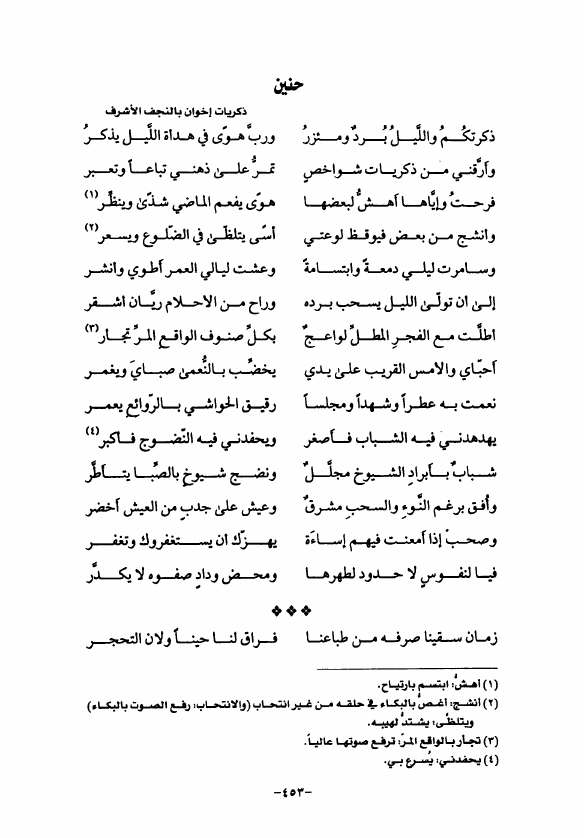 حنين
ذكريات إخوان بالنجف الأشرف
ذكرتكُمُ والليلُ بُردٌ ومئزرُ وربَّ هوًى في هدأة اللّيل يذكرُ
وأرَّقني من ذكريات شواخصٍ تمرُّ على ذهني تباعاً وتعبر
فرحتُ وإيَّاها أهشُّ لبعضها هوًى يفعم الماضي شذًى وينظِّر(١)
وانشج من بعض فيوقظ لوعتي أسًى يتلظّى في الضّلوع ويسعر(٢)
وسامرت ليلي دمعةً وابتسامةً وعشت ليالي العمر أطوي وانشر
إلى ان تولّى الليل يسحب برده وراح من الأحلام ريَّان اشقر
اطلَّت مع الفجرِ المطلِّ لواعجٌ بكلِّ صنوف الواقع المرِّ تجأر(٣)
أحبّاي والأمس القريب على يدي يخضِّب بالنُّعمى صباي ويغمر
نعمت به عطراً وشهداً ومجلساً رقيق الحواشي بالرّوائع يعمر
يهدهدني فيه الشباب فأصغر ويحفدني فيه النّضوج فاكبر(٤)
شبابٌ بأبراد الشيوخ مجلَّلٌ ونضج شيوخ بالصِّبا يتأطَّر
وأفق برغم النَّوء والسحبِ مشرقٌ وعيش على جدبٍ من العيش أخضر
وصحبٌ إذا أمعنت فيهم إساءَة يهزّك ان يستغفروك وتغفر
فيا لنفوسٍ لا حدود لطهرها ومحض ودادٍ صفوه لا يكدَّر
❖❖❖
زمان سقينا صرفه من طباعنا فراق لنا حيناً ولان التحجر
(١) أهشُّ: ابتسم بارتياح.
(٢) انشج: أغصُّ بالبكاء في حلقه من غير انتحاب (والانتحاب: رفع الصوت بالبكاء)
ويتلظّى: يشتدُّ لهيبه.
(٣) تجأر بالواقع المرّ: ترفع صوتها عالياً.
(٤) يحفدني: يُسرع بي.
-٤٥٣-